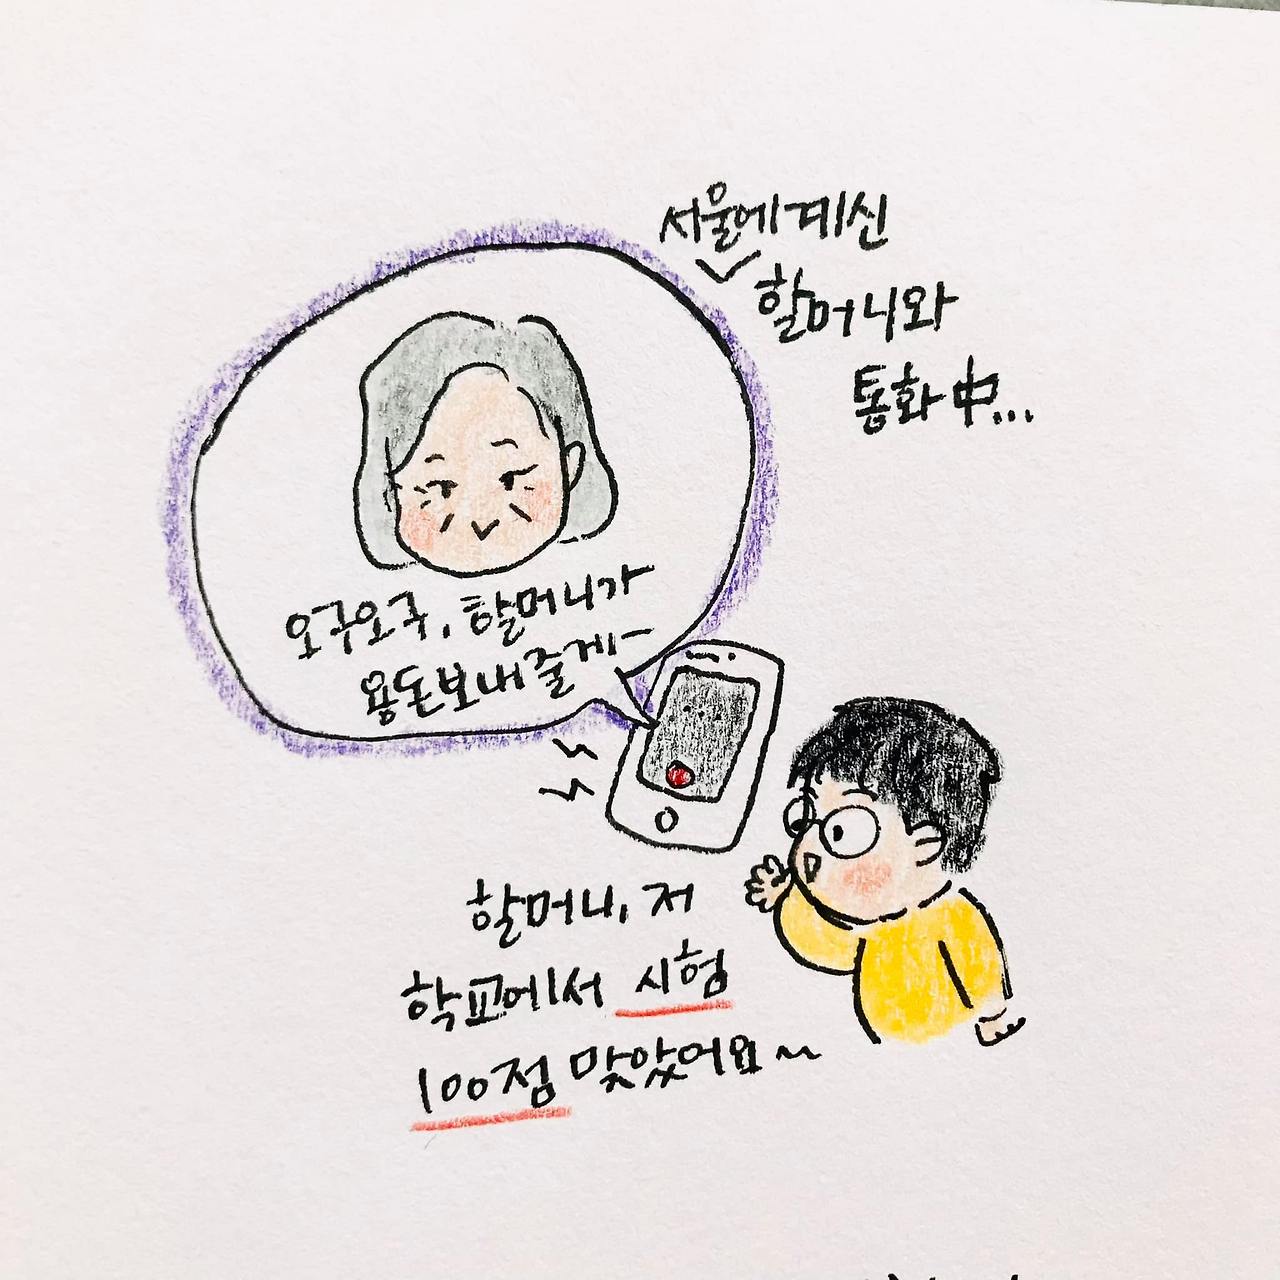 서울에 계신
할머니와
통화 中...
오구오구, 할머니가
용돈보내줄게-
할머니, 저
학교에서 시험
100점 맞았어요~